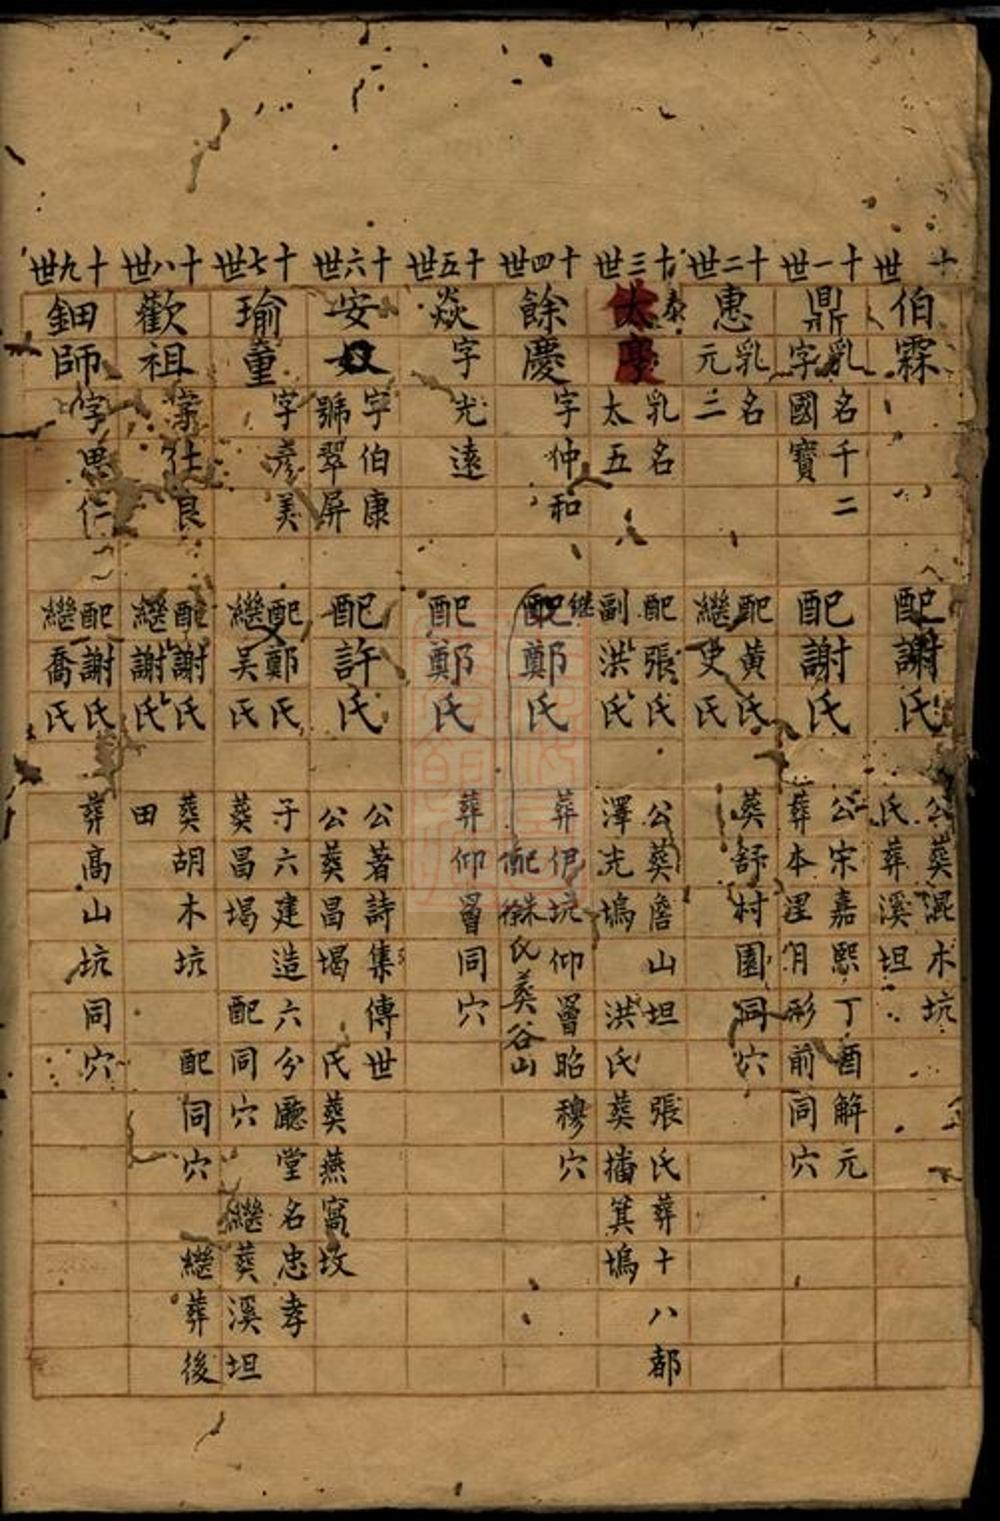 十世
伯霖
配謝氏
公葬混木坑
氏葬溪坦
十一世
鼎
乳名千二
字國寶
配謝氏
公宋嘉熙丁酉解元
葬本里月形前同穴
十二世
惠
乳名
元二
配黃氏
繼史氏
葬舒村園同穴
十三世
泰
太學
乳名
太五
配張氏
副洪氏
公葬詹山坦 張氏葬十八都
澤充塢 洪氏葬播箕塢
十四世
餘慶
字仲和
配鄭氏
继
葬伊坑仰曾昭穆穴
配朱氏葬谷山
徐
十五世
焱
字光遠
配鄭氏
葬仰曾同穴
十六世
安奴
字伯康
號翠屏
配許氏
公著詩集傳世
公葬昌堨 氏葬燕窩坟
十七世
瑜童
字彦美
配鄭氏
繼吴氏
子六建造六分廳堂名忠孝
葬昌堨 配同穴 繼葬溪坦
十八世
歡祖
字仕良
配謝氏
繼謝氏
葬胡木坑 配同穴 繼葬後
田
十九世
鈿師
字思仁
配謝氏
繼喬氏
葬高山坑同穴